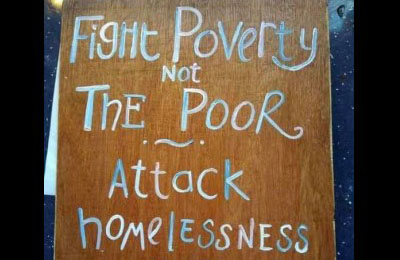 FigHt Poverty
Not
THE POOR
Attack
homelessness